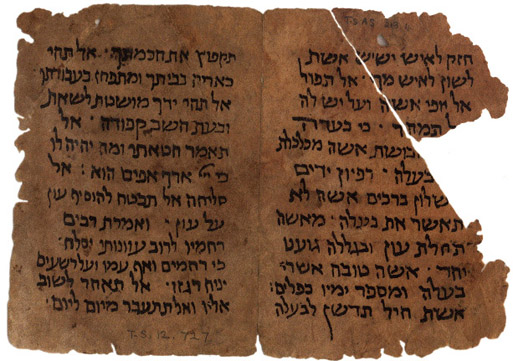 T-S AS 213.4
חזק לאיש ישיש אשת
לשון לאיש מך · אל תפול
אל יפי אשה ועל יש לה
תמהר · כי בעדה
ובושת אשה מכלכלת
בעלה · רפיון ידים
שלון ברכים אשה לא
תאשר את בעלה · מאשה
תחלת עון ובגללה גוענו
יחד · אשה טובה אשרי
בעלה ומספר ימיו כפלים :
אשת חיל תדשן לבעלה
תקפוץ את חכמתך · אל תהי
כאריה בביתך ומתפחז בעבודתך
אל תהי ידך מושטת לשאת
ובעת השב קפודה · אל
תאמר חטאתי ומה יהיה לו
כי ייי ארך אפים הוא : אל
סליחה אל תבטח להוסיף עון
על עון · ואמרת רבים
רחמיו לרוב עוונותי יסלח ·
כי רחמים ואף עמו ועל רשעים
יניח רגזו · אל תאחר לשוב
אליו ואל תתעבר מיום ליום ·
T.S. 12. 727